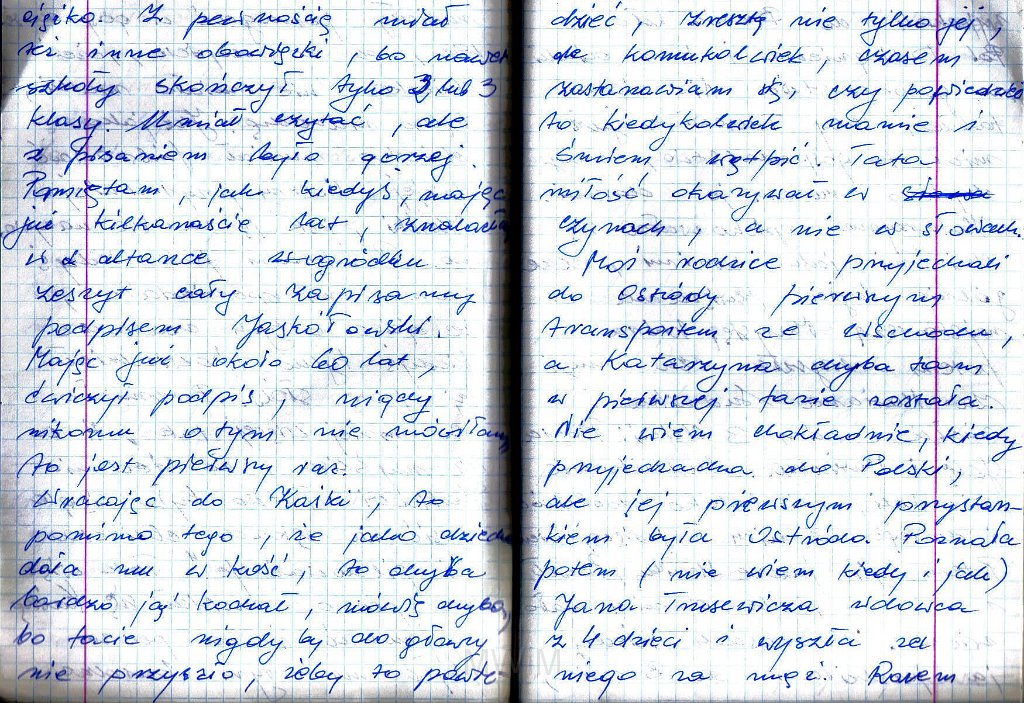 ciężko. Z pewnością miał
też inne obowiązki, bo nawet
szkoły skończył tylko 2 lub 3
klasy. Umiał czytać, ale
z pisaniem było gorzej.
Pamiętam, jak kiedyś, mając
już kilkanaście lat, znalazłam
w altance w ogródku
zeszyt cały zapisany
podpisem Jaskółowski.
Mając już około 60 lat,
ćwiczył podpis, nigdy
nikomu o tym nie mówiłam,
to jest pierwszy raz.
Wracając do Kaśki, to
pomimo tego, że jako dziecko
dała mu w kość, to chyba
bardzo ją kochał, mówię chyba,
bo tacie nigdy by do głowy
nie przyszło, żeby to powie-
dzieć, zresztą nie tylko jej,
ale komukolwiek, czasem
zastanawiam się, czy powiedział
to kiedykolwiek mamie i
śmiem wątpić. Tata
miłość okazywał w
czynach, a nie w słowach.
Moi rodzice przyjechali
do Ostródy pierwszym
transportem ze wschodu,
a Katarzyna chyba tam
w pierwszej fazie została.
Nie wiem dokładnie, kiedy
przyjechała do Polski,
ale jej pierwszym przystan-
kiem była Ostróda. Poznała
potem (nie wiem kiedy i jak)
Jana wdowca
z 4 dzieci i wyszła za
niego za mąż. Razem